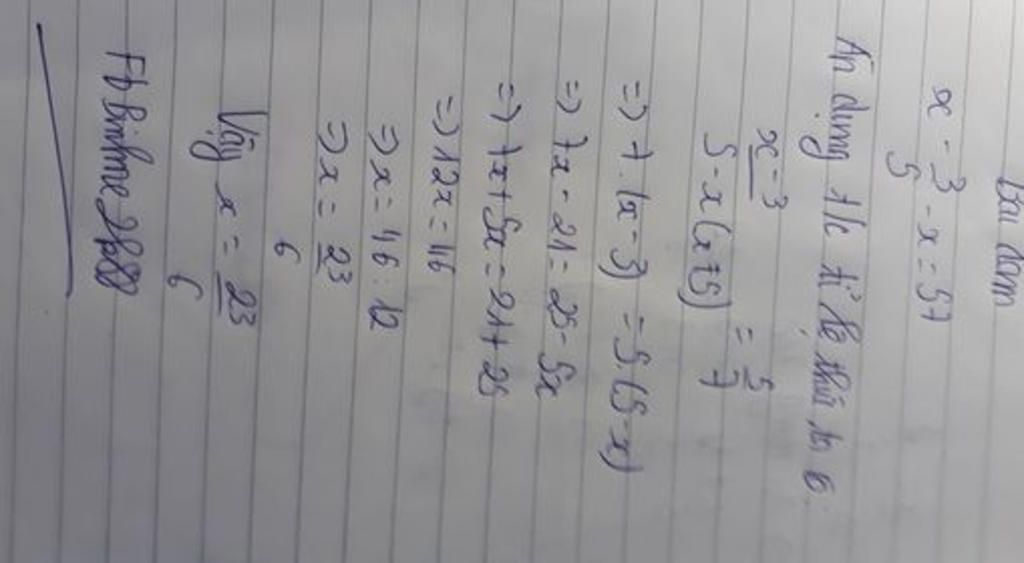 Bài làm
x - 3 - x = 57
5
Áp dụng t/c tỉ lệ thức ta có
x - 3
5 - x (x ≠ 5) = 5
7
=> 7 . (x - 3) = 5 . (5 - x)
=> 7x - 21 = 25 - 5x
=> 7x + 5x = 21 + 25
=> 12x = 46
=> x = 46 : 12
=> x = 23
6
Vậy x = 23
6